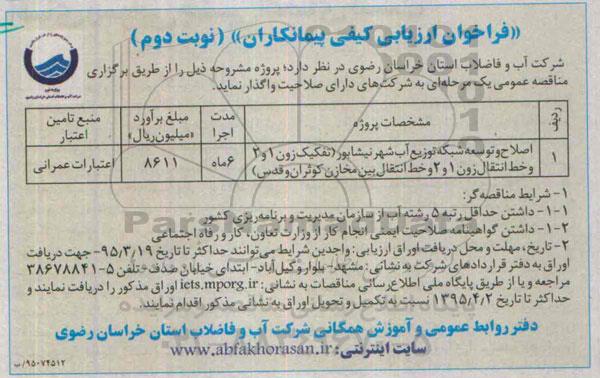 «فراخوان ارزیابی کیفی پیمانکاران» (نوبت دوم)
شرکت آب و فاضلاب استان خراسان رضوی در نظر دارد؛ پروژه مشروحه ذیل را از طریق برگزاری
مناقصه عمومی یک مرحله‌ای به شرکت‌های دارای صلاحیت واگذار نماید.
ردیف مشخصات پروژه مدت اجرا مبلغ برآورد «میلیون‌ریال» منبع تامین اعتبار
۱ اصلاح و توسعه شبکه توزیع آب شهر نیشابور (تفکیک زون ۱ و ۲ و خط انتقال زون ۱ و ۲ و خط انتقال بین مخازن کوثران و قدس) ۶ ماه ۸۶۱۱ اعتبارات عمرانی
۱- شرایط مناقصه‌گر:
۱-۱- داشتن حداقل رتبه ۵ رشته آب از سازمان مدیریت و برنامه‌ریزی کشور
۱-۲- داشتن گواهینامه صلاحیت ایمنی انجام کار از وزارت تعاون، کار و رفاه اجتماعی
۲- تاریخ، مهلت و محل دریافت اوراق ارزیابی: واجدین شرایط می‌توانند حداکثر تا تاریخ ۹۵/۳/۱۹- جهت دریافت
اوراق به دفتر قراردادهای شرکت به نشانی: مشهد- بلوار وکیل‌آباد- ابتدای خیابان صدف- تلفن ۵-۳۸۶۷۸۸۴۱
مراجعه و یا از طریق پایگاه ملی اطلاع‌رسانی مناقصات به نشانی: iets.mporg.ir اوراق مذکور را دریافت نمایند و
حداکثر تا تاریخ ۱۳۹۵/۴/۲ نسبت به تکمیل و تحویل اوراق به نشانی مذکور اقدام نمایند.
دفتر روابط عمومی و آموزش همگانی شرکت آب و فاضلاب استان خراسان رضوی
سایت اینترنتی: www.abfakhorasan.ir
۹۵۰۷۴۵۱۲/ب